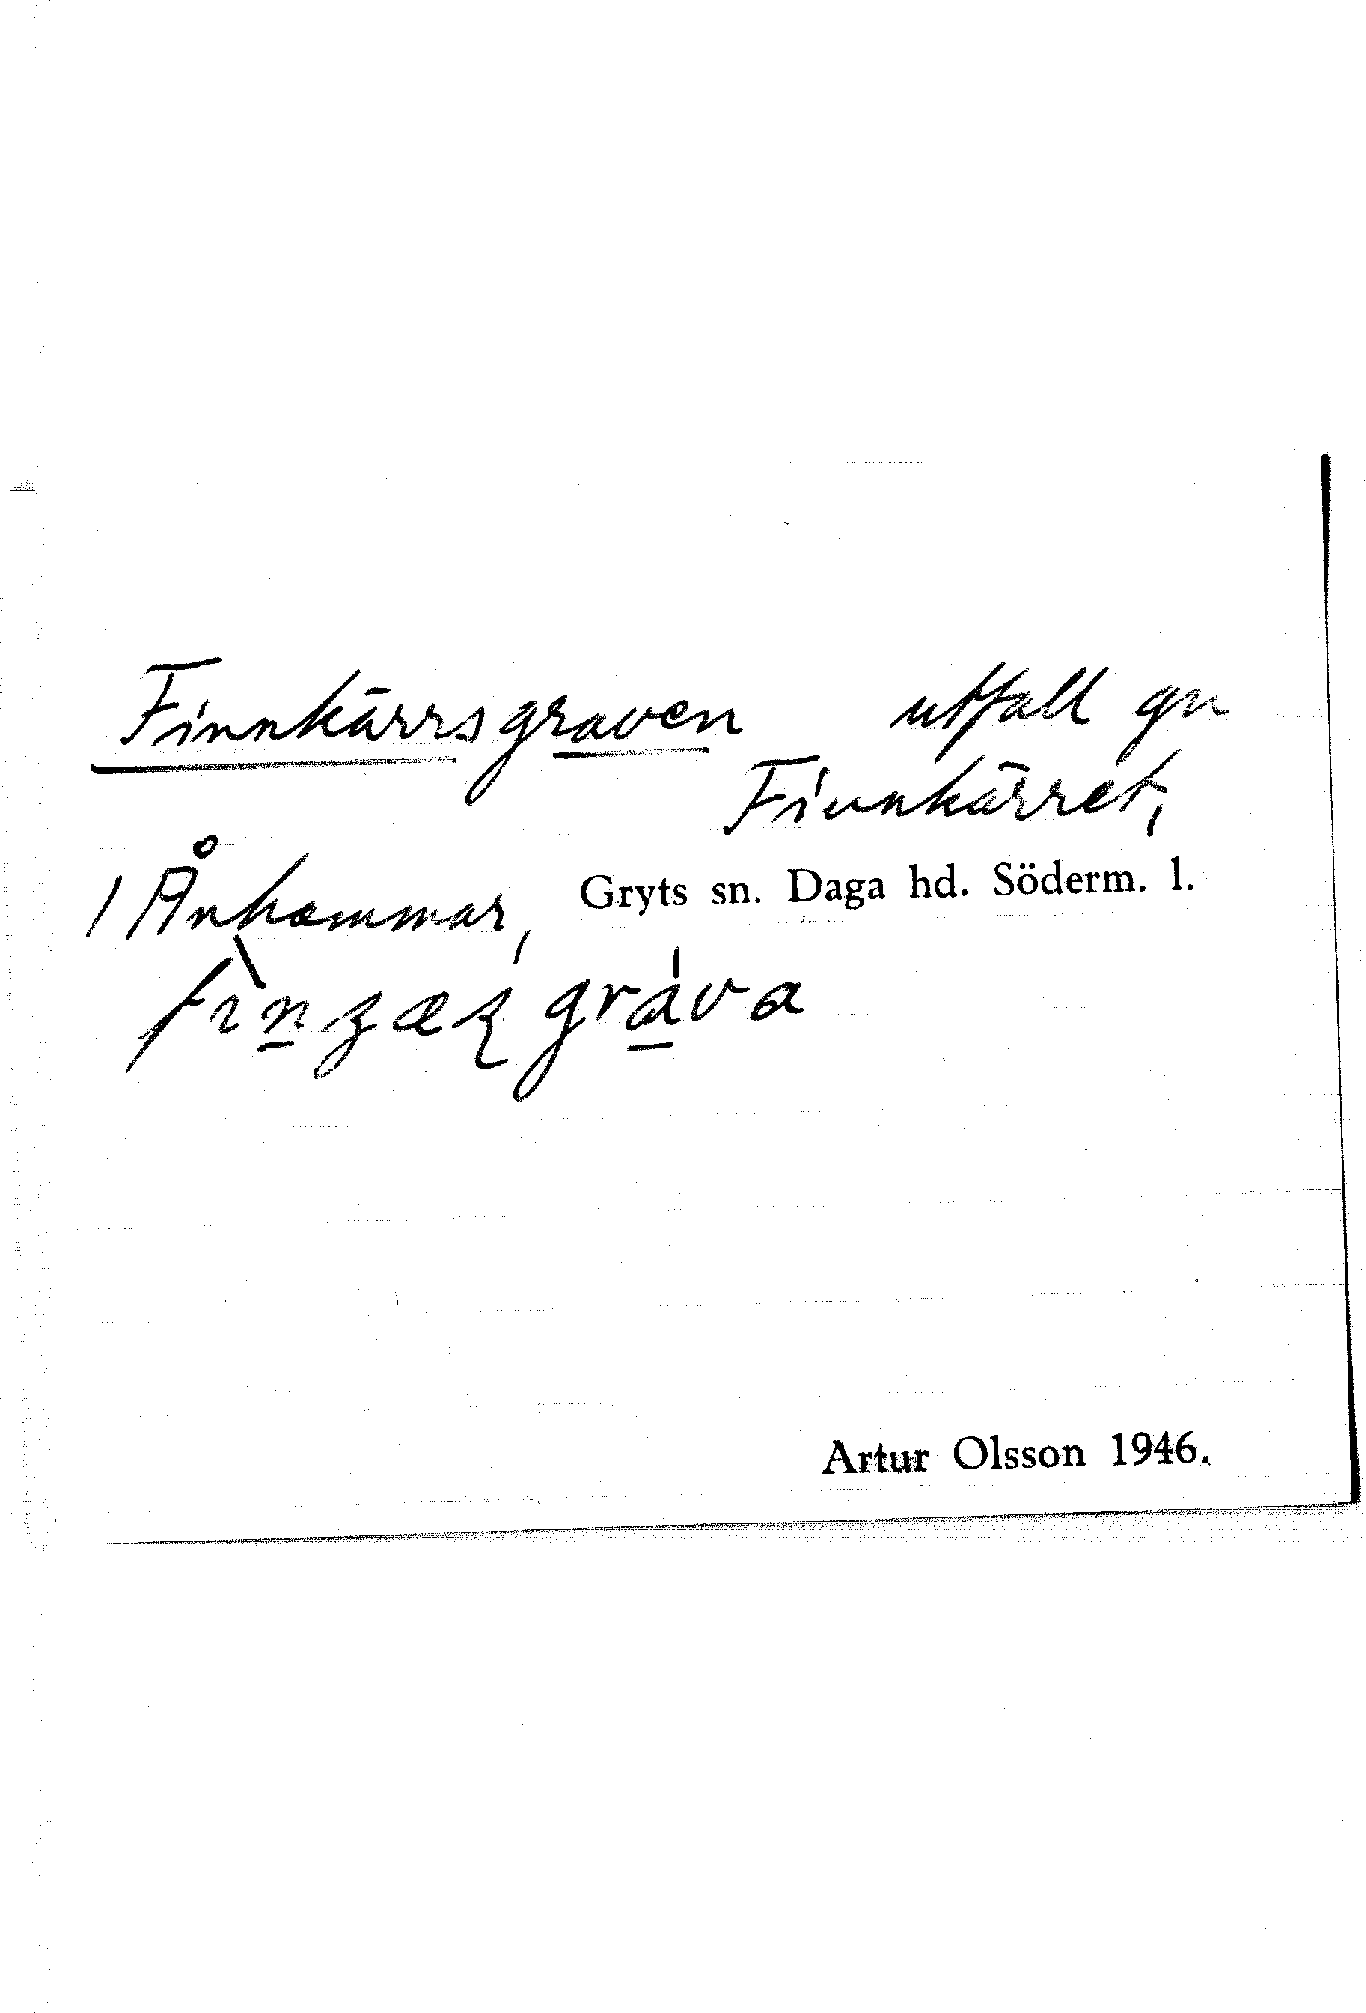 Finnkärrsgraven utfall gn
Finnkärret,
/ Ånhammar, Gryts sn. Daga hd. Söderm. l.
Artur Olsson 1946.